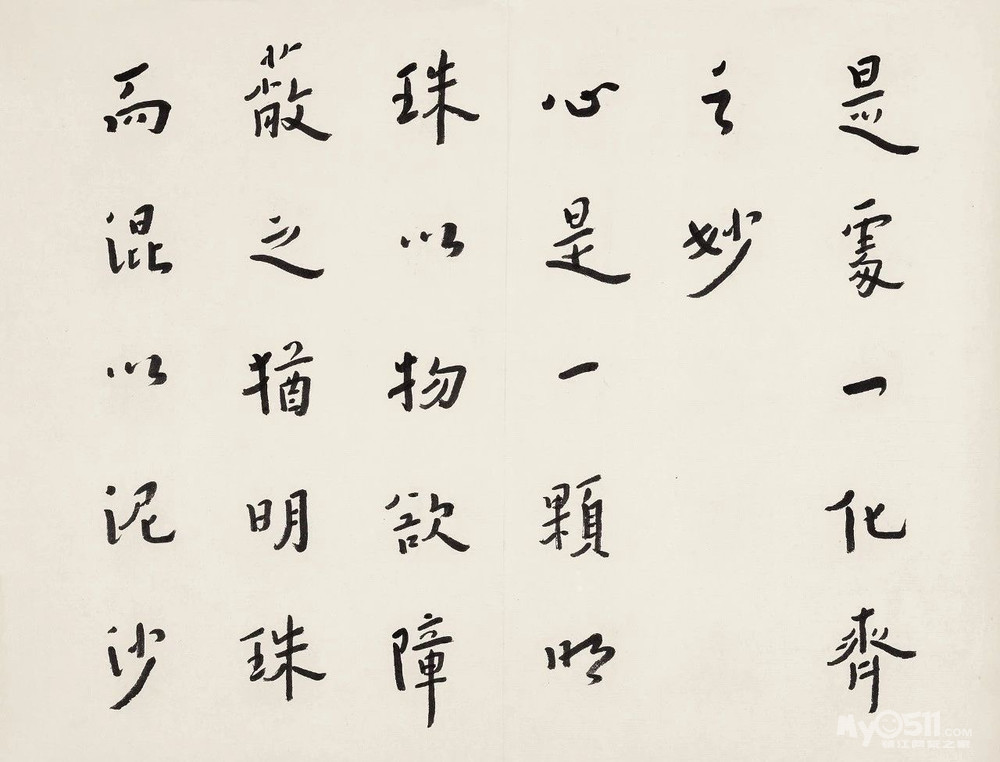 是處一化齊
之妙
心是一顆明
珠以物欲障
蔽之猶明珠
而混以泥沙
My0511.COM